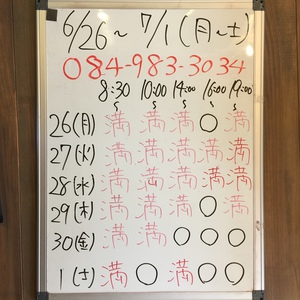 6/26～7/1(月～土)
084-983-3034
8:30～ 10:00～ 14:00～ 16:00～ 19:00～
26(月) 満 満 満 ○ 満
27(火) 満 満 満 満 満
28(水) 満 満 満 満 満
29(木) 満 満 満 ○ 満
30(金) 満 満 ○ ○ ○
1(土) 満 ○ 満 ○ ○